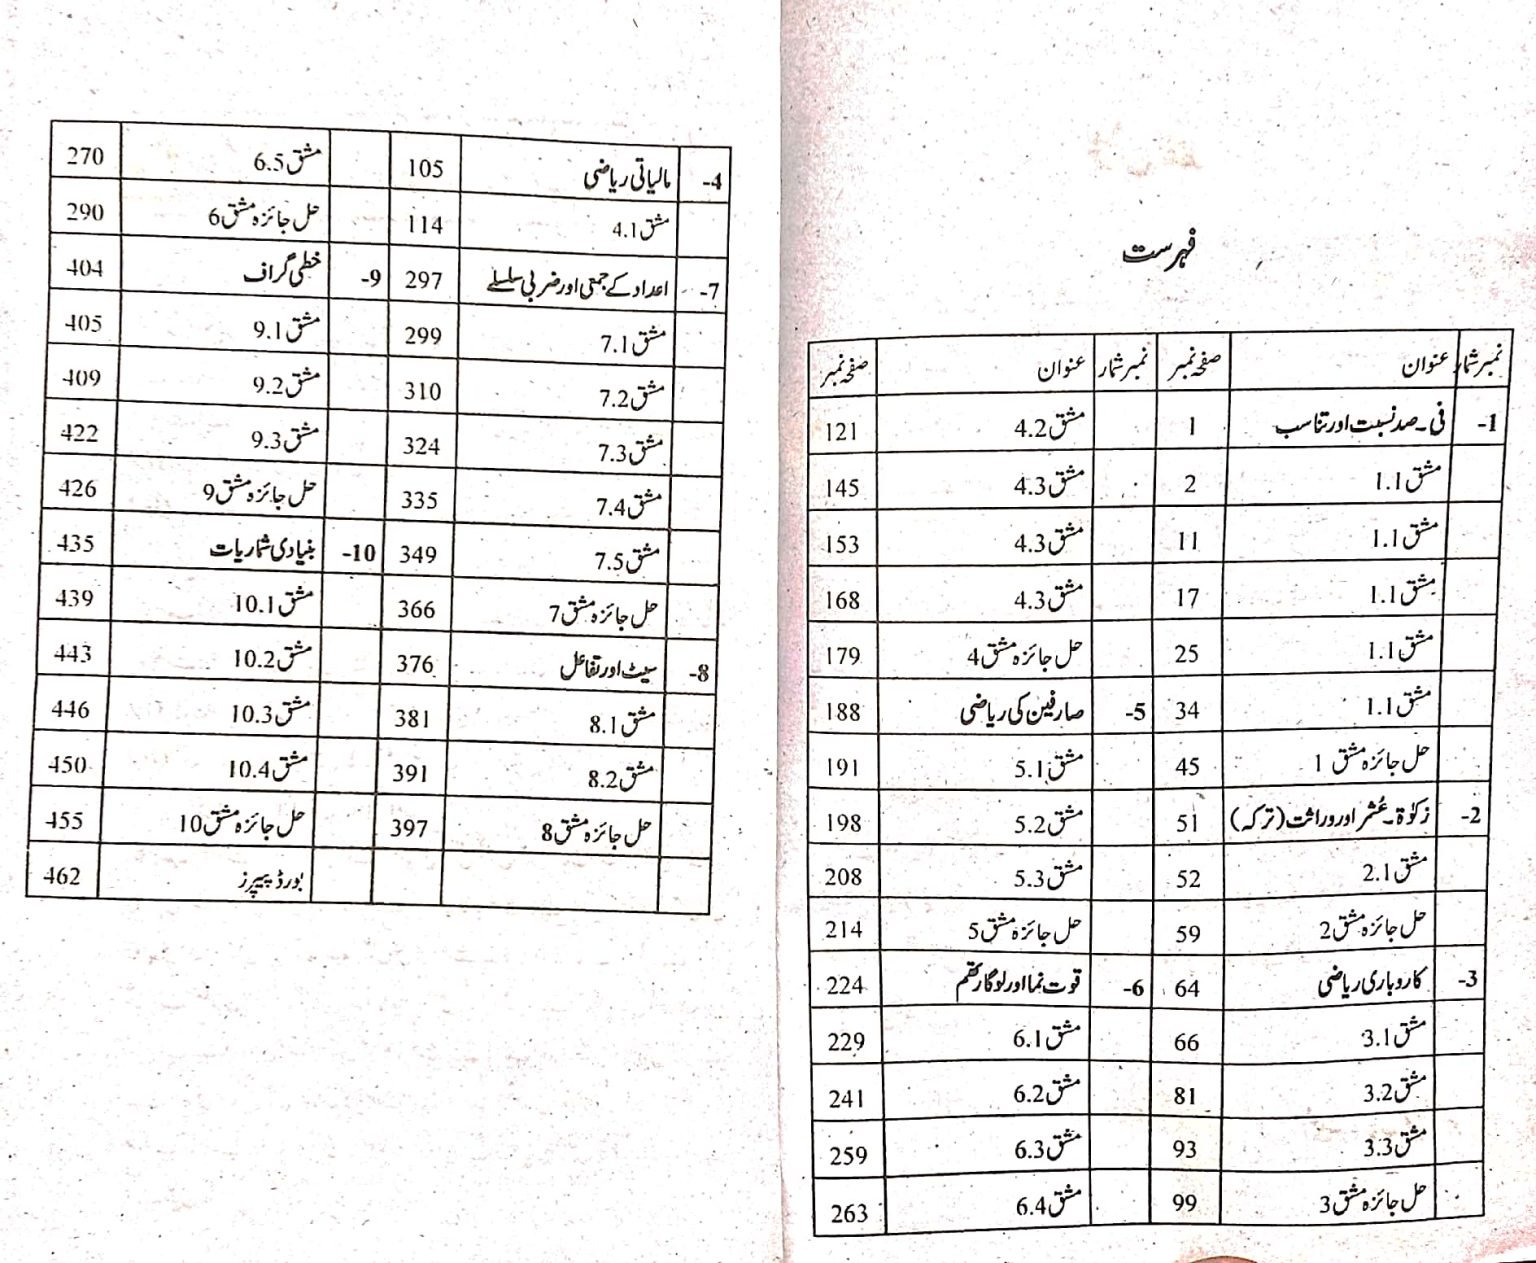 فہرست
نمبر شمار عنوان صفحہ نمبر نمبر شمار عنوان صفحہ نمبر
1- فی۔صد نسبت اور تناسب 1 مشق 4.2 121
مشق 1.1 2 مشق 4.3 145
مشق 1.1 11 مشق 4.3 153
مشق 1.1 17 مشق 4.3 168
مشق 1.1 25 حل جائزہ مشق 4 179
مشق 1.1 34 5- صارفین کی ریاضی 188
حل جائزہ مشق 1 45 مشق 5.1 191
2- زکوٰۃ۔عُشر اور وراثت (ترکہ) 51 مشق 5.2 198
مشق 2.1 52 مشق 5.3 208
حل جائزہ مشق 2 59 حل جائزہ مشق 5 214
3- کاروباری ریاضی 64 6- قوت نما اور لوگارتھم 224
مشق 3.1 66 مشق 6.1 229
مشق 3.2 81 مشق 6.2 241
مشق 3.3 93 مشق 6.3 259
حل جائزہ مشق 3 99 مشق 6.4 263
4- مالیاتی ریاضی 105 مشق 6.5 270
مشق 4.1 114 حل جائزہ مشق 6 290
7- اعداد کے جمعی اور ضربی سلسلے 297 9- خطی گراف 404
مشق 7.1 299 مشق 9.1 405
مشق 7.2 310 مشق 9.2 409
مشق 7.3 324 مشق 9.3 422
مشق 7.4 335 حل جائزہ مشق 9 426
مشق 7.5 349 10- بنیادی شماریات 435
حل جائزہ مشق 7 366 مشق 10.1 439
8- سیٹ اور تفاعل 376 مشق 10.2 443
مشق 8.1 381 مشق 10.3 446
مشق 8.2 391 مشق 10.4 450
حل جائزہ مشق 8 397 حل جائزہ مشق 10 455
بورڈ پیپرز 462